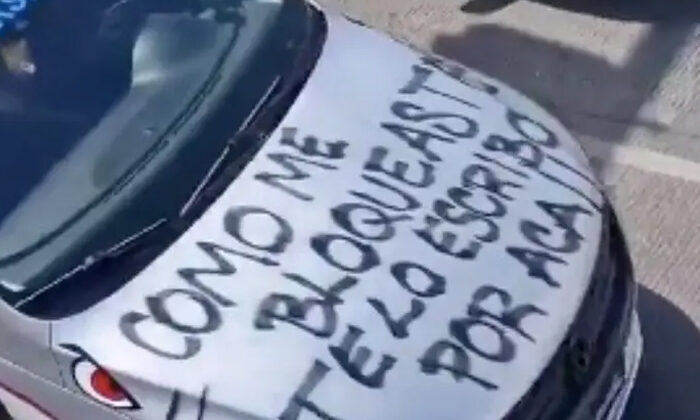 COMO ME
BLOQUEASTE
TE LO ESCRIBO
POR ACA